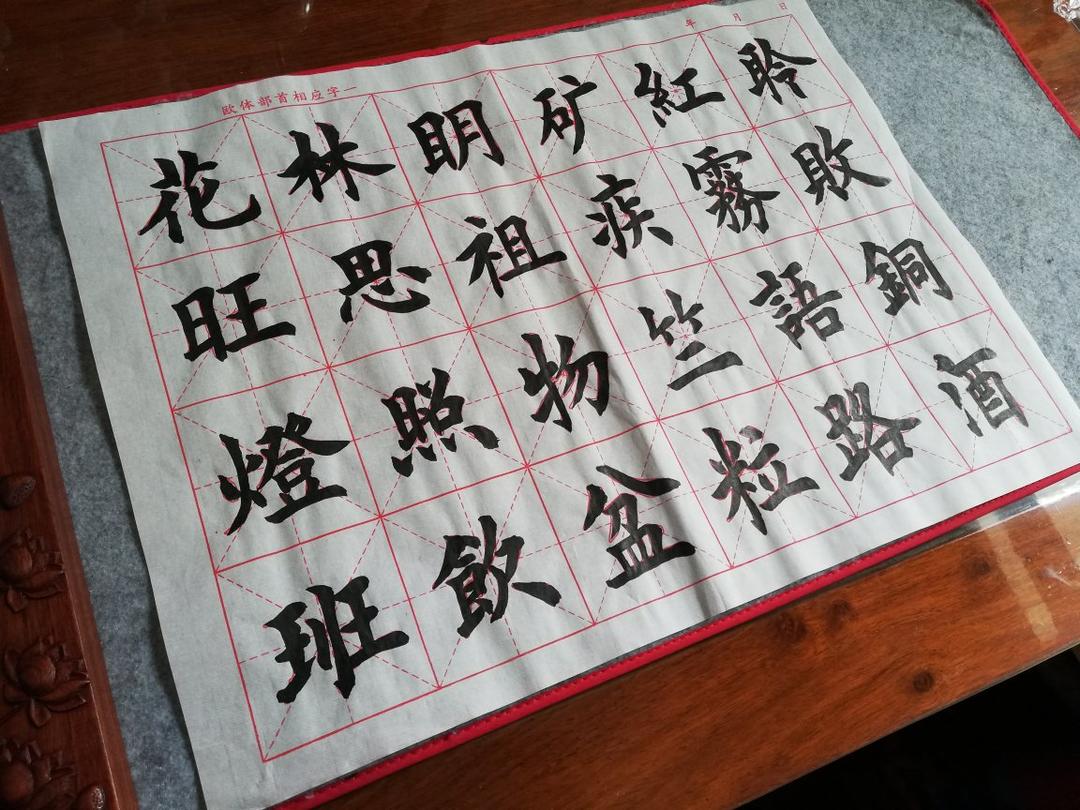 欧体部首相应字一
年 月 日
花林明矿紅聆
旺思祖疾霧敗
燈照物竺語銅
班飲盆粒路酒